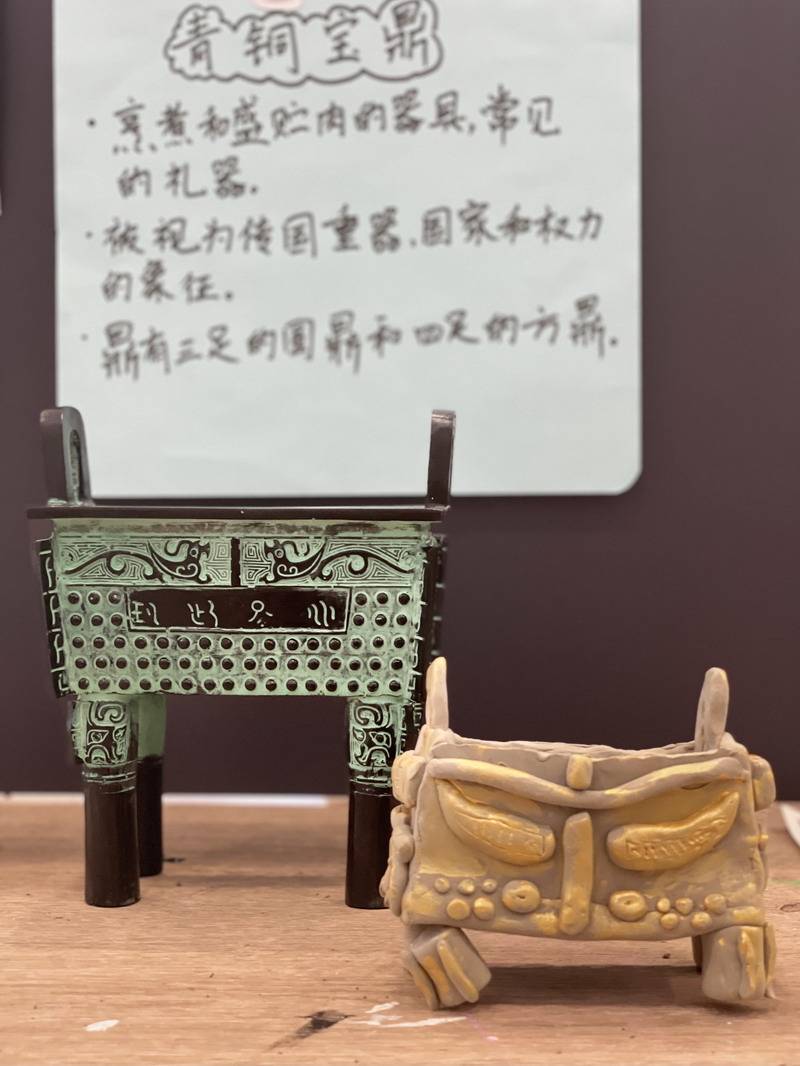 青铜宝鼎
·烹煮和盛贮肉的器具,常见
的礼器。
·被视为传国重器.国家和权力
的象征。
·鼎有三足的圆鼎和四足的方鼎。